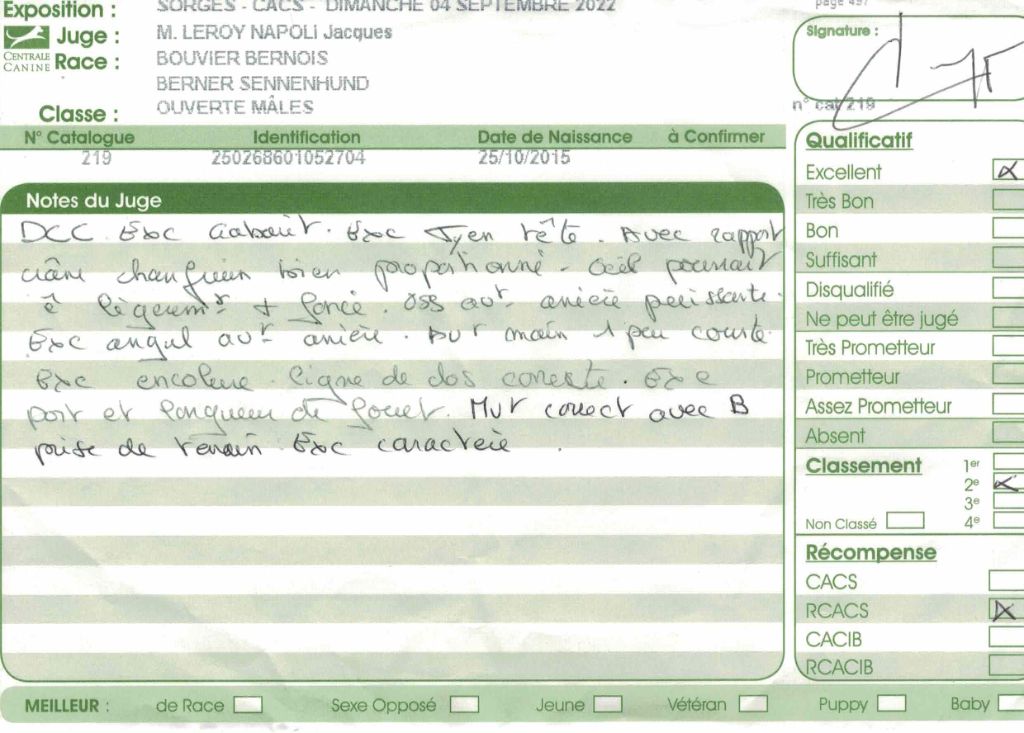 Exposition : SORGES - CACS - DIMANCHE 04 SEPTEMBRE 2022
page 497
Juge : M. LEROY NAPOLI Jacques
Signature :
CENTRALE CANINE
Race : BOUVIER BERNOIS
BERNER SENNENHUND
Classe : OUVERTE MÂLES
n° cat 219
N° Catalogue Identification Date de Naissance à Confirmer
219 250268601052704 25/10/2015
Qualificatif
Excellent
Très Bon
Bon
Suffisant
Disqualifié
Ne peut être jugé
Très Prometteur
Prometteur
Assez Prometteur
Absent
Notes du Juge
DCC. Exc Gabarit. Exc en tête. Avec rapport
crâne chanfrein bien proportionné - Oeil pourrait
ê légèremt + foncé. Oss avt arrière puissante.
Exc angul avt arrière. Avt main 1 peu courte.
Exc encolure. ligne de dos correcte. Exc
port et longueur de fouet. Mvt correct avec B
prise de terrain. Exc caractère
Classement
1er
2e
3e
Non Classé 4e
Récompense
CACS
RCACS
CACIB
RCACIB
MEILLEUR : de Race Sexe Opposé Jeune Vétéran Puppy Baby